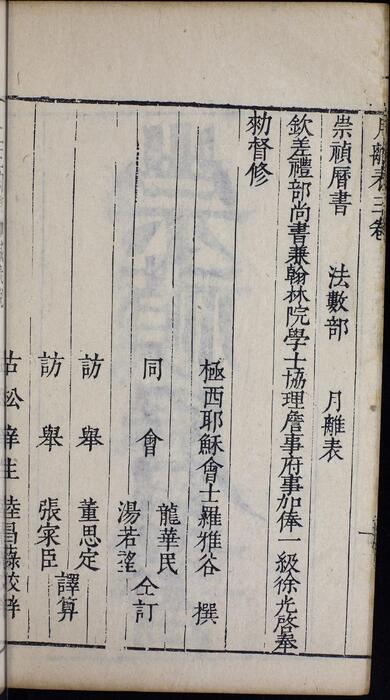 月離表三卷
崇禎曆書 法數部 月離表
欽差禮部尚書兼翰林院學士協理詹事府事加俸一級徐光啓奉
勑督修
極西耶穌會士羅雅谷 撰
同會 龍華民 湯若望 仝訂
訪舉 董思定
訪舉 張寀臣 譯算